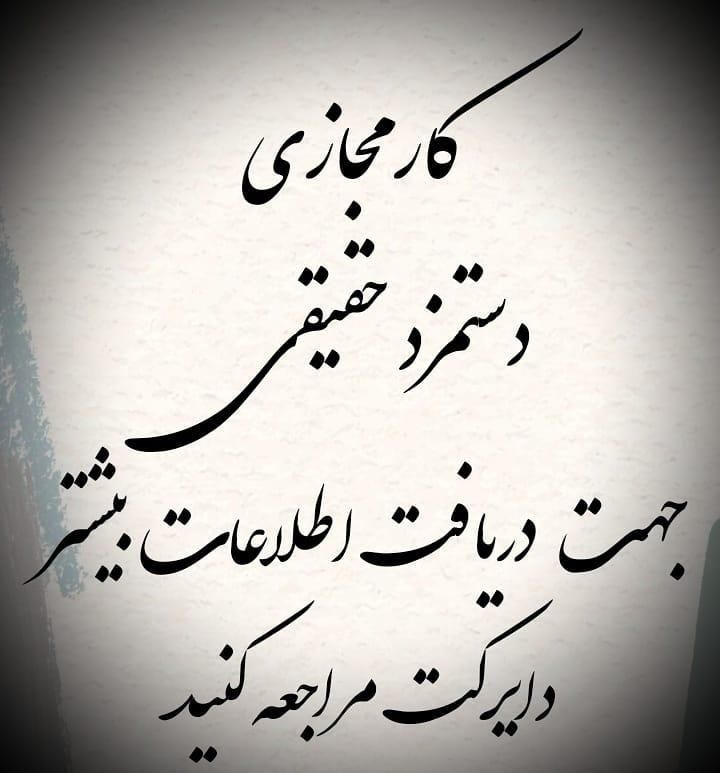 کار مجازی
دستمزد حقیقی
جهت دریافت اطلاعات بیشتر
دایرکت مراجعه کنید